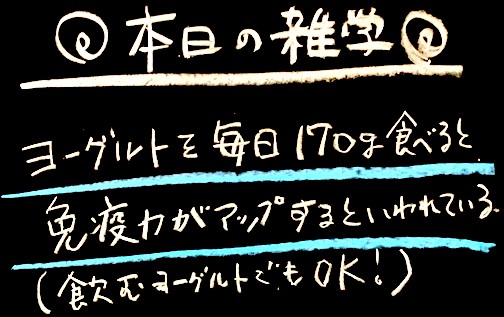 本日の雑学
ヨーグルトを毎日170g食べると
免疫力がアップするといわれている。
(飲むヨーグルトでもOK!)